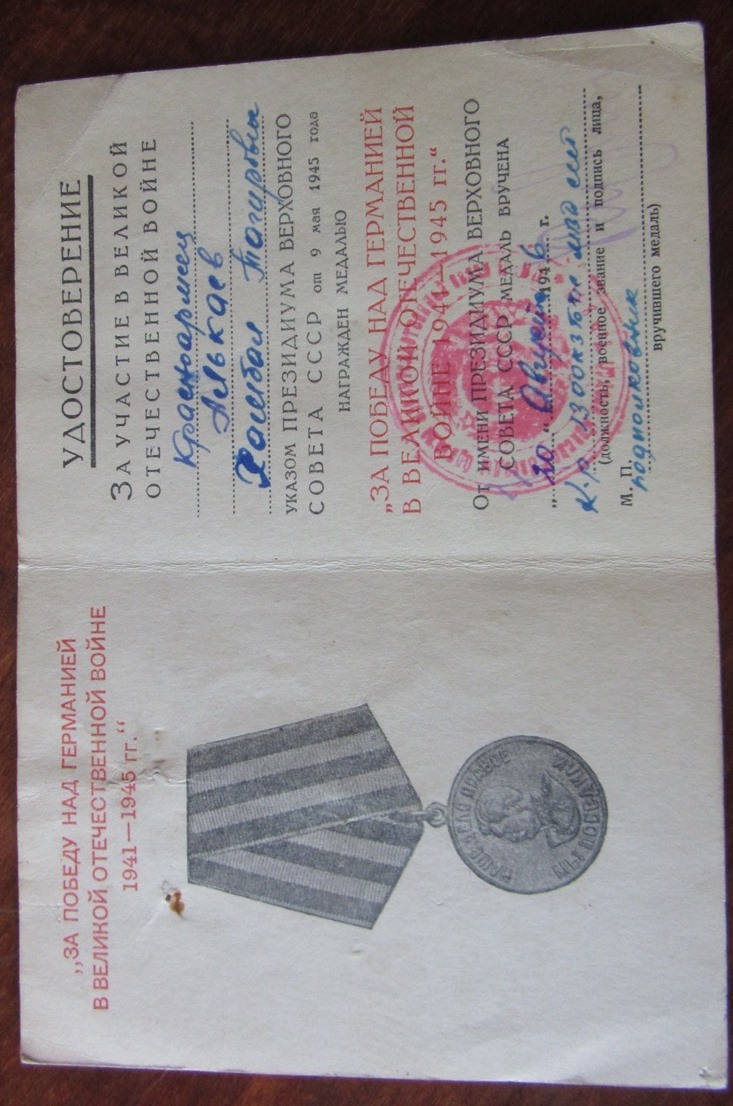 „ЗА ПОБЕДУ НАД ГЕРМАНИЕЙ
В ВЕЛИКОЙ ОТЕЧЕСТВЕННОЙ ВОЙНЕ
1941—1945 гг.“
НАШЕ ДЕЛО ПРАВОЕ
МЫ ПОБЕДИЛИ
УДОСТОВЕРЕНИЕ
ЗА УЧАСТИЕ В ВЕЛИКОЙ
ОТЕЧЕСТВЕННОЙ ВОЙНЕ
Красноармеец
УКАЗОМ ПРЕЗИДИУМА ВЕРХОВНОГО
СОВЕТА СССР от 9 мая 1945 года
НАГРАЖДЕН МЕДАЛЬЮ
„ЗА ПОБЕДУ НАД ГЕРМАНИЕЙ
В ВЕЛИКОЙ ОТЕЧЕСТВЕННОЙ
ВОЙНЕ 1941—1945 гг.“
ОТ ИМЕНИ ПРЕЗИДИУМА ВЕРХОВНОГО
СОВЕТА СССР МЕДАЛЬ ВРУЧЕНА
194 г.
(должность, военное звание и подпись лица,
М. П. подполковник
вручившего медаль)